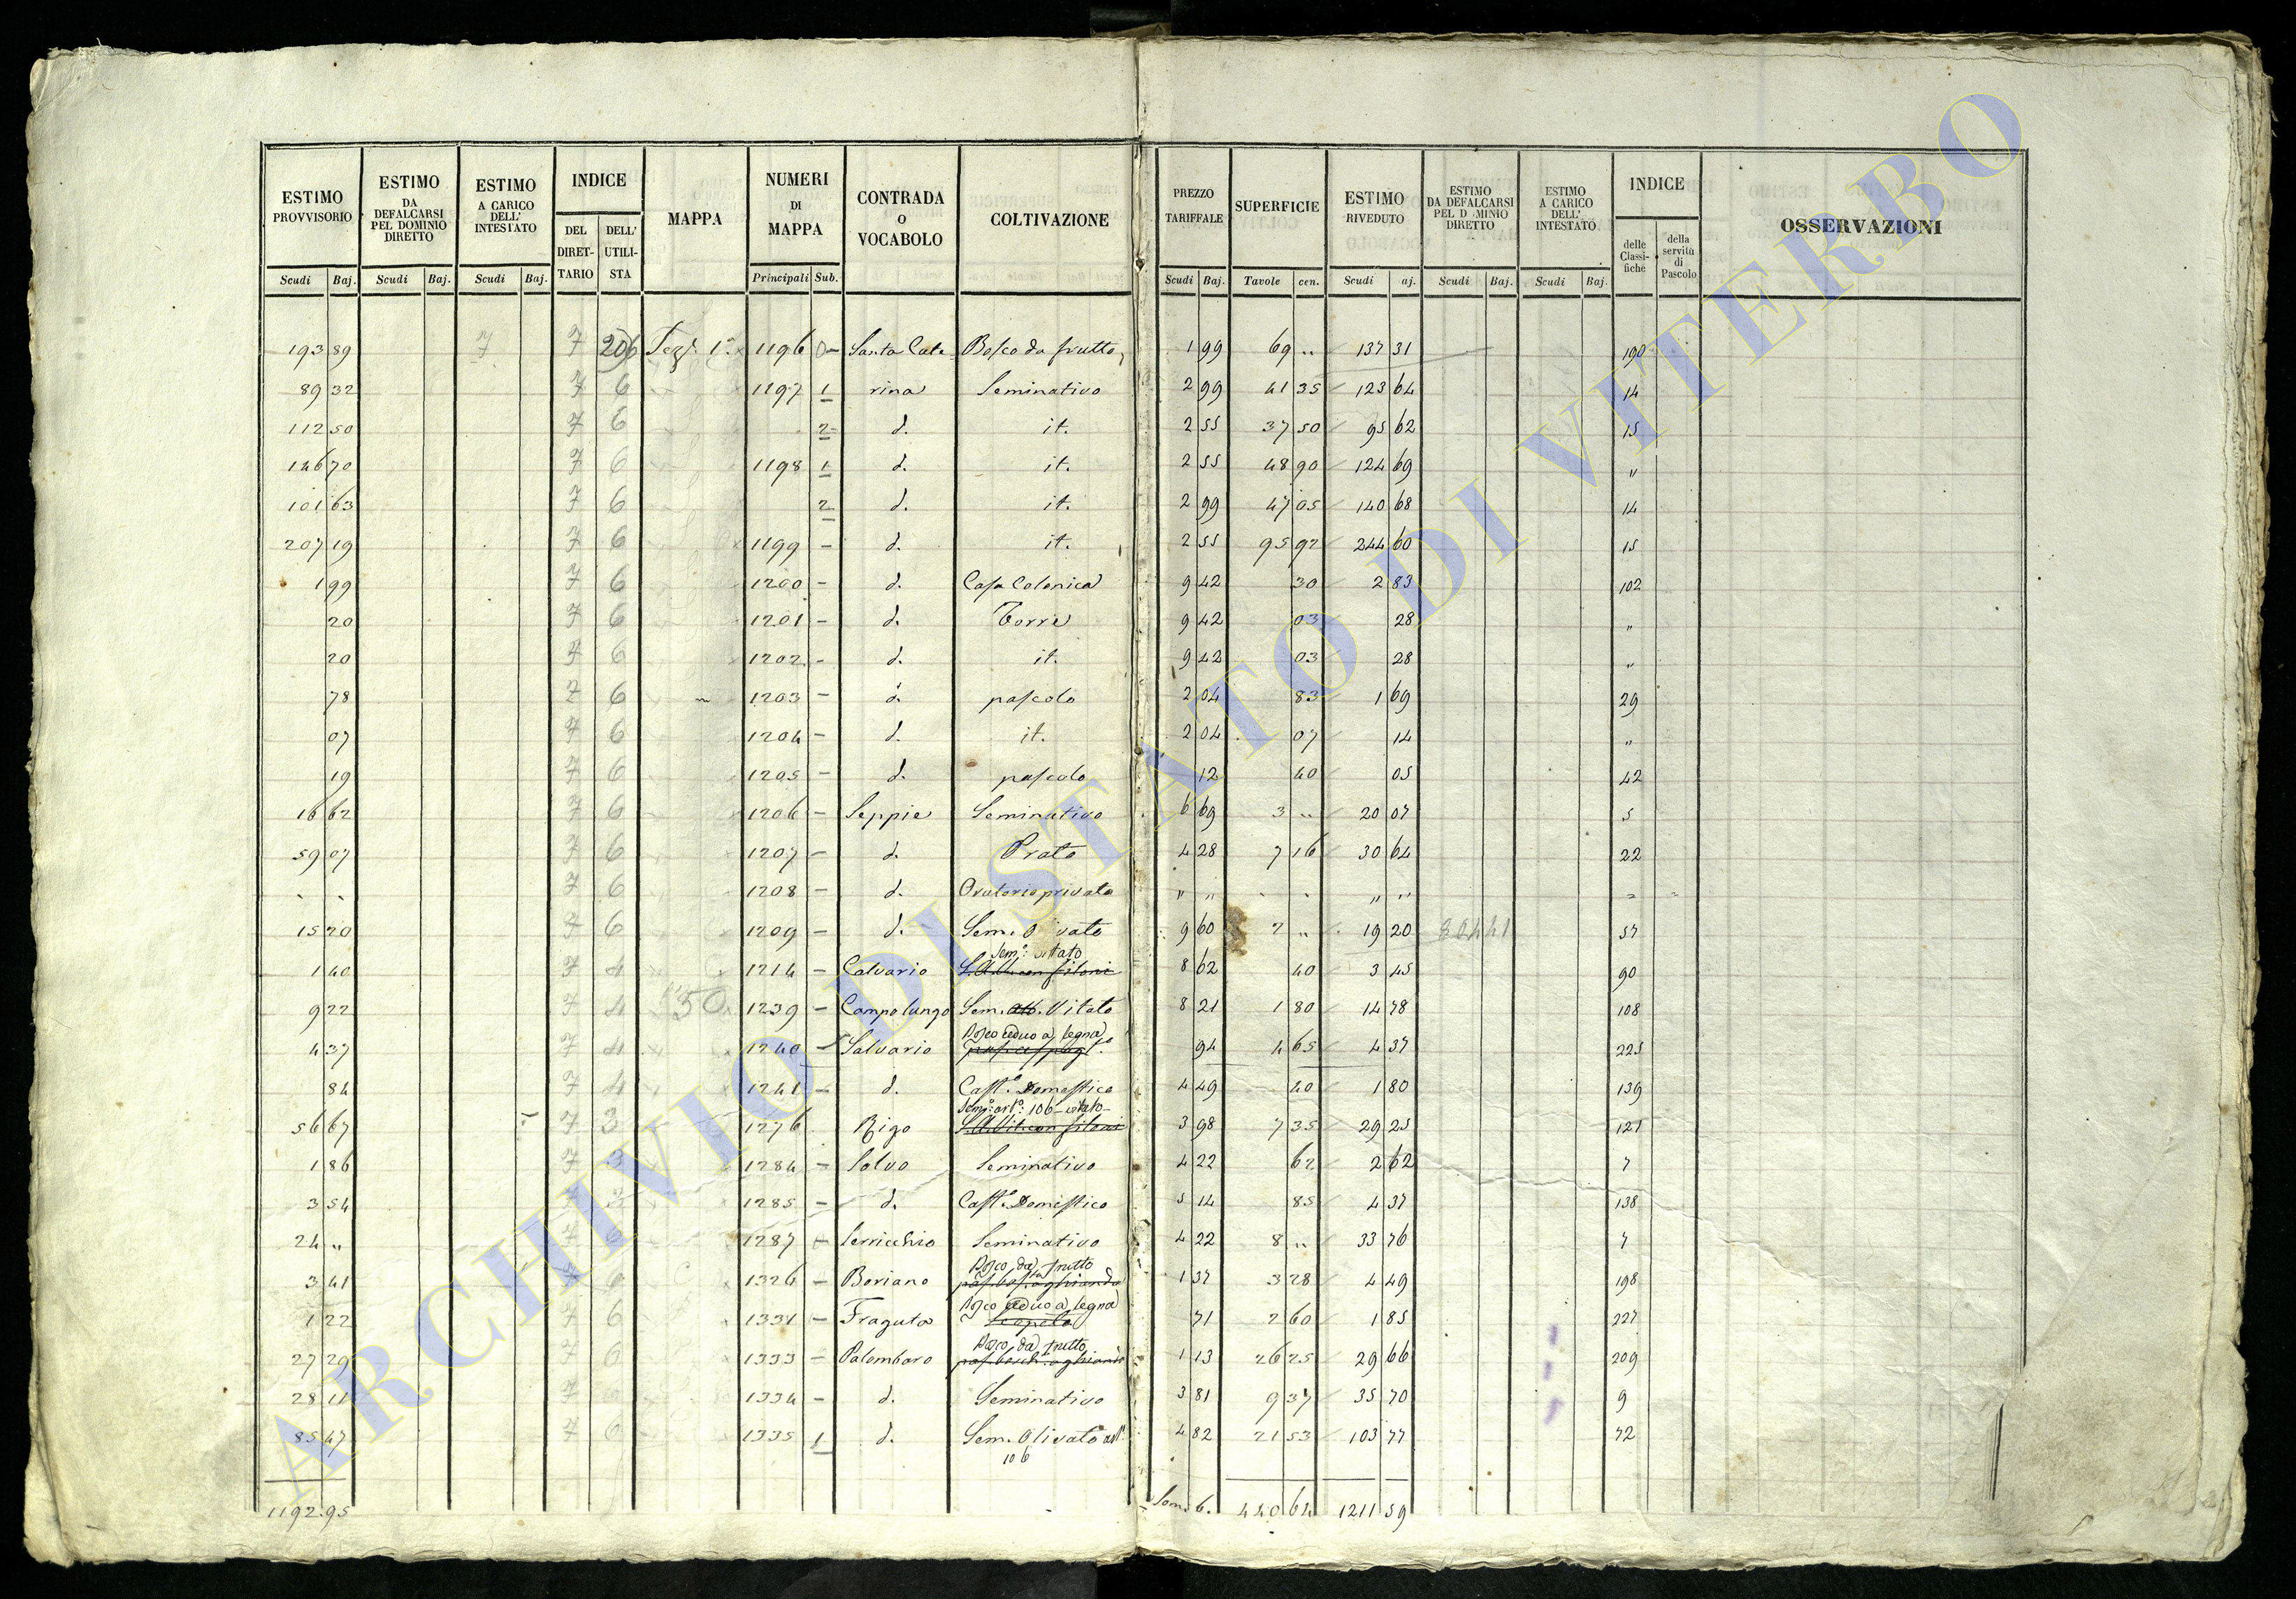 ESTIMO PROVVISORIO Scudi Baj.
ESTIMO DA DEFALCARSI PEL DOMINIO DIRETTO Scudi Baj.
ESTIMO A CARICO DELL' INTESTATO Scudi Baj.
INDICE DEL DIRETTARIO DELL' UTILISTA
MAPPA
NUMERI DI MAPPA Principali Sub.
CONTRADA O VOCABOLO
COLTIVAZIONE
PREZZO TARIFFALE Scudi Baj.
SUPERFICIE Tavole cen.
ESTIMO RIVEDUTO Scudi aj.
ESTIMO DA DEFALCARSI PEL D MINIO DIRETTO Scudi Baj.
ESTIMO A CARICO DELL' INTESTATO Scudi Baj.
INDICE delle Classifiche della servitù di Pascolo
OSSERVAZIONI
193 89 7 7 206 1196 Santa Cate Bosco da frutto 1 99 69 " 137 31 190
89 32 7 6 1197 1 rina Seminativo 2 99 41 35 123 64 14
112 50 7 6 2 d. it. 2 55 37 50 95 62 15
146 70 7 6 1198 1 d. it. 2 55 48 90 124 69 "
101 63 7 6 2 d. it. 2 99 47 05 140 68 14
207 19 7 6 1199 - d. it. 2 55 95 92 244 60 15
1 99 7 6 1200 - d. Casa Colonica 9 42 30 2 83 102
20 7 6 1201 - d. Torre 9 42 03 28 "
20 7 6 1202 - d. it. 9 42 03 28 "
78 7 6 1203 - d. pascolo 2 04 83 1 69 29
07 7 6 1204 - d. it. 2 04 07 14 "
19 7 6 1205 - d. pascolo 12 40 05 42
16 62 7 6 1206 - Seppie Seminativo 6 69 3 " 20 07 5
59 07 7 6 1207 - d. Prato 4 28 7 16 30 64 22
" " 7 6 1208 - d. Oratorio privato " " " " " "
15 20 7 6 1209 - d. Sem. O vato 9 60 2 " 19 20 57
Sem.° vitato
1 40 7 4 1214 - Calvario 8 62 40 3 45 90
9 22 7 4 50 1239 - Campo lungo Sem. Vitato 8 21 1 80 14 78 108
Bosco ceduo a legna
4 37 7 4 1240 - Salvario 94 4 65 4 37 225
84 7 4 1241 - d. Cast.° Domestico 4 49 40 1 80 139
Sem.° art.° 106 vitato
56 67 7 3 1276 Rigo 3 98 7 35 29 25 121
1 86 7 3 1284 - Salvo Seminativo 4 22 62 2 62 7
3 54 7 1285 - d. Cast.° Domestico 5 14 85 4 37 138
24 " 7 6 1287 - Seminativo 4 22 8 " 33 76 7
Bosco da frutto
3 41 1326 - Boriano 1 37 3 28 4 49 198
Bosco ceduo a legna
1 22 7 6 1331 - Fraguta 71 2 60 1 85 227
Bosco da frutto
27 29 7 6 1333 - Palombaro 1 13 26 25 29 66 209
28 11 7 1334 - d. Seminativo 3 81 9 37 35 70 9
85 47 7 6 1335 1 d. Sem. Olivato art. 4 82 21 53 103 77 72
106
1192.95 Som. 6. 440 64 1211 59
ARCHIVIO DI STATO DI VITERBO